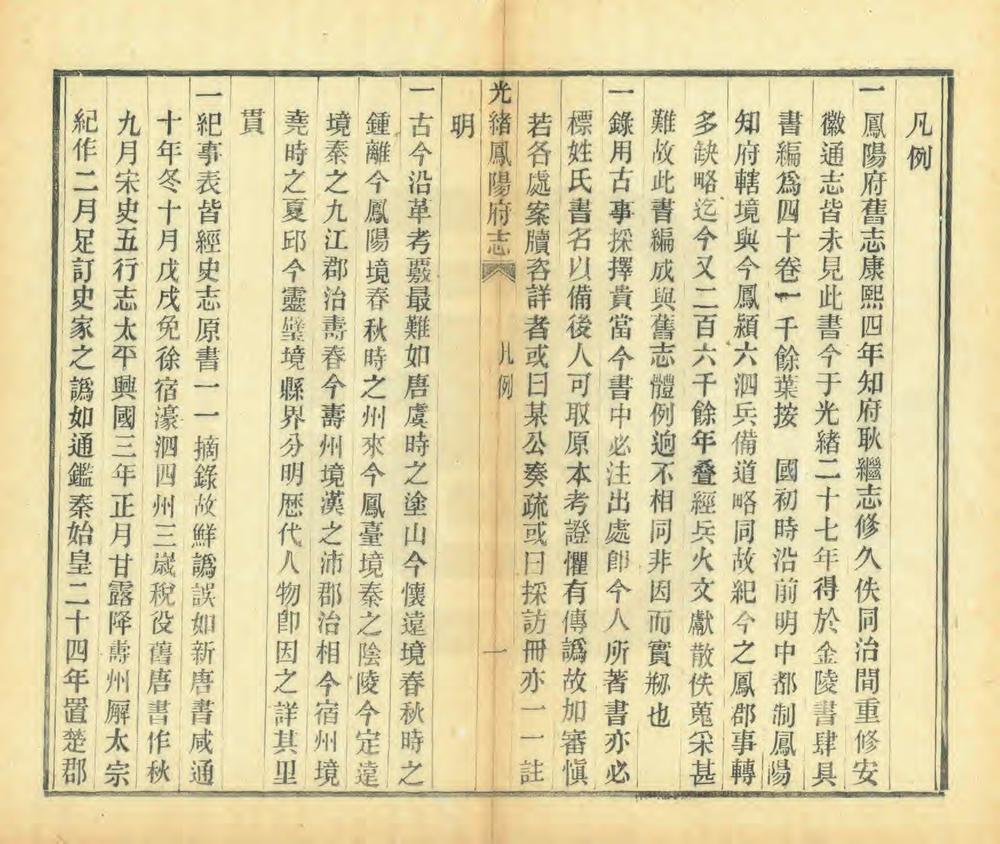 凡例
一鳳陽府舊志康熙四年知府耿繼志修久佚同治間重修安
徽通志皆未見此書今于光緒二十七年得於金陵書肆具
書編爲四十卷一千餘葉按　國初時沿前明中都制鳳陽
知府轄境與今鳳潁六泗兵備道略同故紀今之鳳郡事轉
多缺略迄今又二百六千餘年叠經兵火文獻散佚蒐采甚
難故此書編成與舊志體例逈不相同非因而實剏也
一錄用古事採擇貴當今書中必注出處卽今人所著書亦必
標姓氏書名以備後人可取原本考證懼有傳譌故加審愼
若各處案牘咨詳者或曰某公奏疏或曰採訪冊亦一一註
光緒鳳陽府志　凡例　一
明
一古今沿革考覈最難如唐虞時之塗山今懷遠境春秋時之
鍾離今鳳陽境春秋時之州來今鳳臺境秦之陰陵今定遠
境秦之九江郡治壽春今壽州境漢之沛郡治相今宿州境
堯時之夏邱今靈璧境縣界分明歷代人物卽因之詳其里
貫
一紀事表皆經史志原書一一摘錄故鮮譌誤如新唐書咸通
十年冬十月戊戌免徐宿濠泗四州三歲稅役舊唐書作秋
九月宋史五行志太平興國三年正月甘露降壽州廨太宗
紀作二月足訂史家之譌如通鑑秦始皇二十四年置楚郡